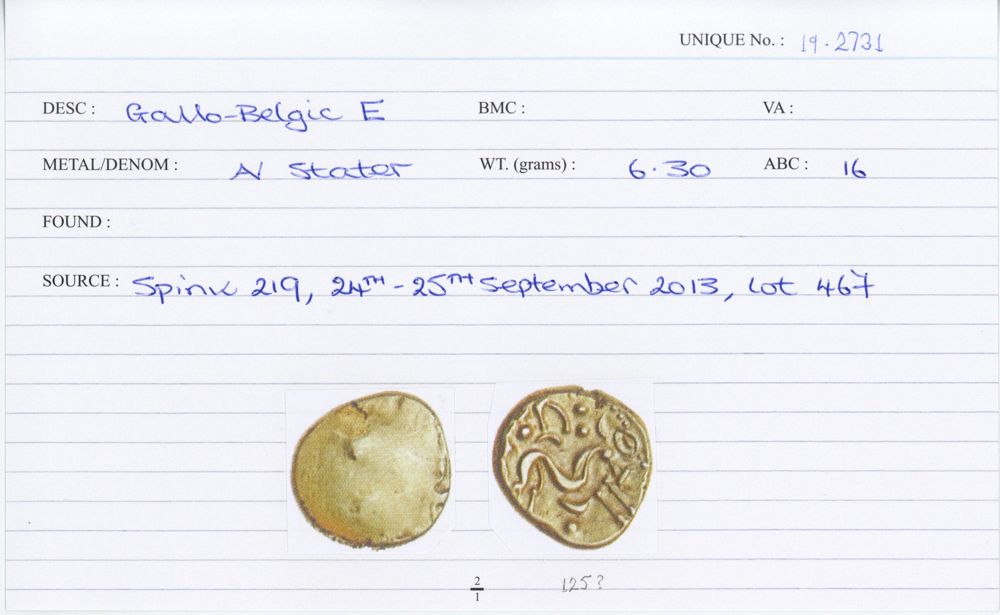 UNIQUE No. : 19-2731
DESC : Gallo-Belgic E BMC : VA :
METAL/DENOM : AV Stater WT. (grams) : 6.30 ABC : 16
FOUND :
SOURCE : Spink 219, 24TH - 25TH September 2013, Lot 467
2
1
125?